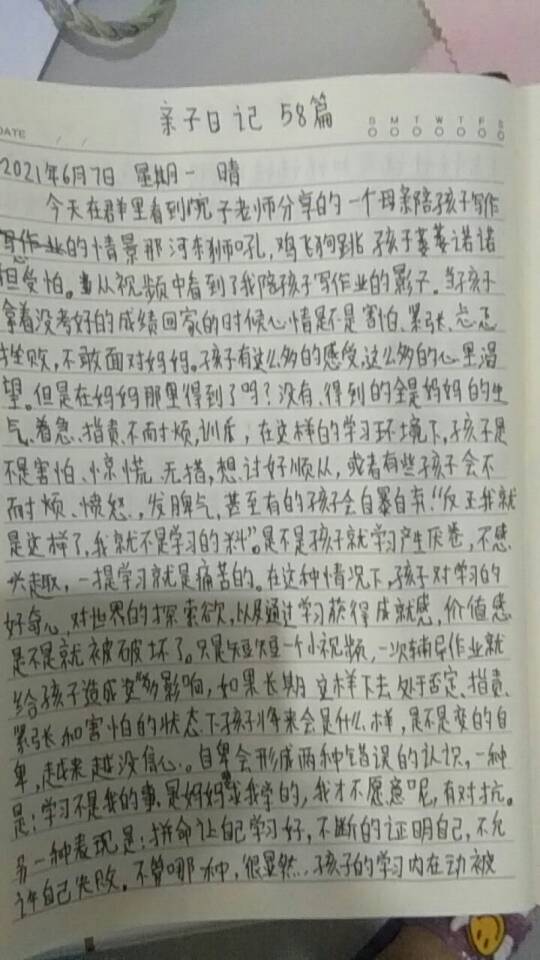 亲子日记 58篇
DATE / /
S M T W T F S
2021年6月7日 星期一 晴
今天在群里看到悦子老师分享的一个母亲陪孩子写作
写作业的情景那河东狮吼,鸡飞狗跳 孩子萎萎诺诺
担受怕。从视频中看到了我陪孩子写作业的影子。当孩子
拿着没考好的成绩回家的时候心情是不是害怕、紧张、忐忑
挫败,不敢面对妈妈。孩子有这么多的感受,这么多的心里渴
望。但是在妈妈那里得到了吗?没有、得到的全是妈妈的生
气、着急、指责、不耐烦,训斥,在这样的学习环境下,孩子是
不是害怕、惊慌 无措,想讨好顺从,或者有些孩子会不
耐烦、愤怒,发脾气,甚至有的孩子会自暴自弃!“反正我就
是这样了,我就不是学习的料”。是不是孩子就学习产生厌卷,不感
兴趣,一提学习就是痛苦的。在这种情况下,孩子对学习的
好奇心,对世界的探索欲,以及通过学习获得成就感,价值感
是不是就被破坏了。只是短短一个小视频,一次辅导作业就
给孩子造成这多影响,如果长期这样下去 处于否定、指责、
紧张和害怕的状态下孩子将来会是什么样,是不是变的自
卑,越来越没信心。自卑会形成两种错误的认识,一种
是:学习不是我的事,是妈妈要我学的,我才不愿意呢,有对抗。
另一种表现是:拼命让自己学习好,不断的证明自己,不允
许自己失败。不管哪种,很显然,孩子的学习内在动被